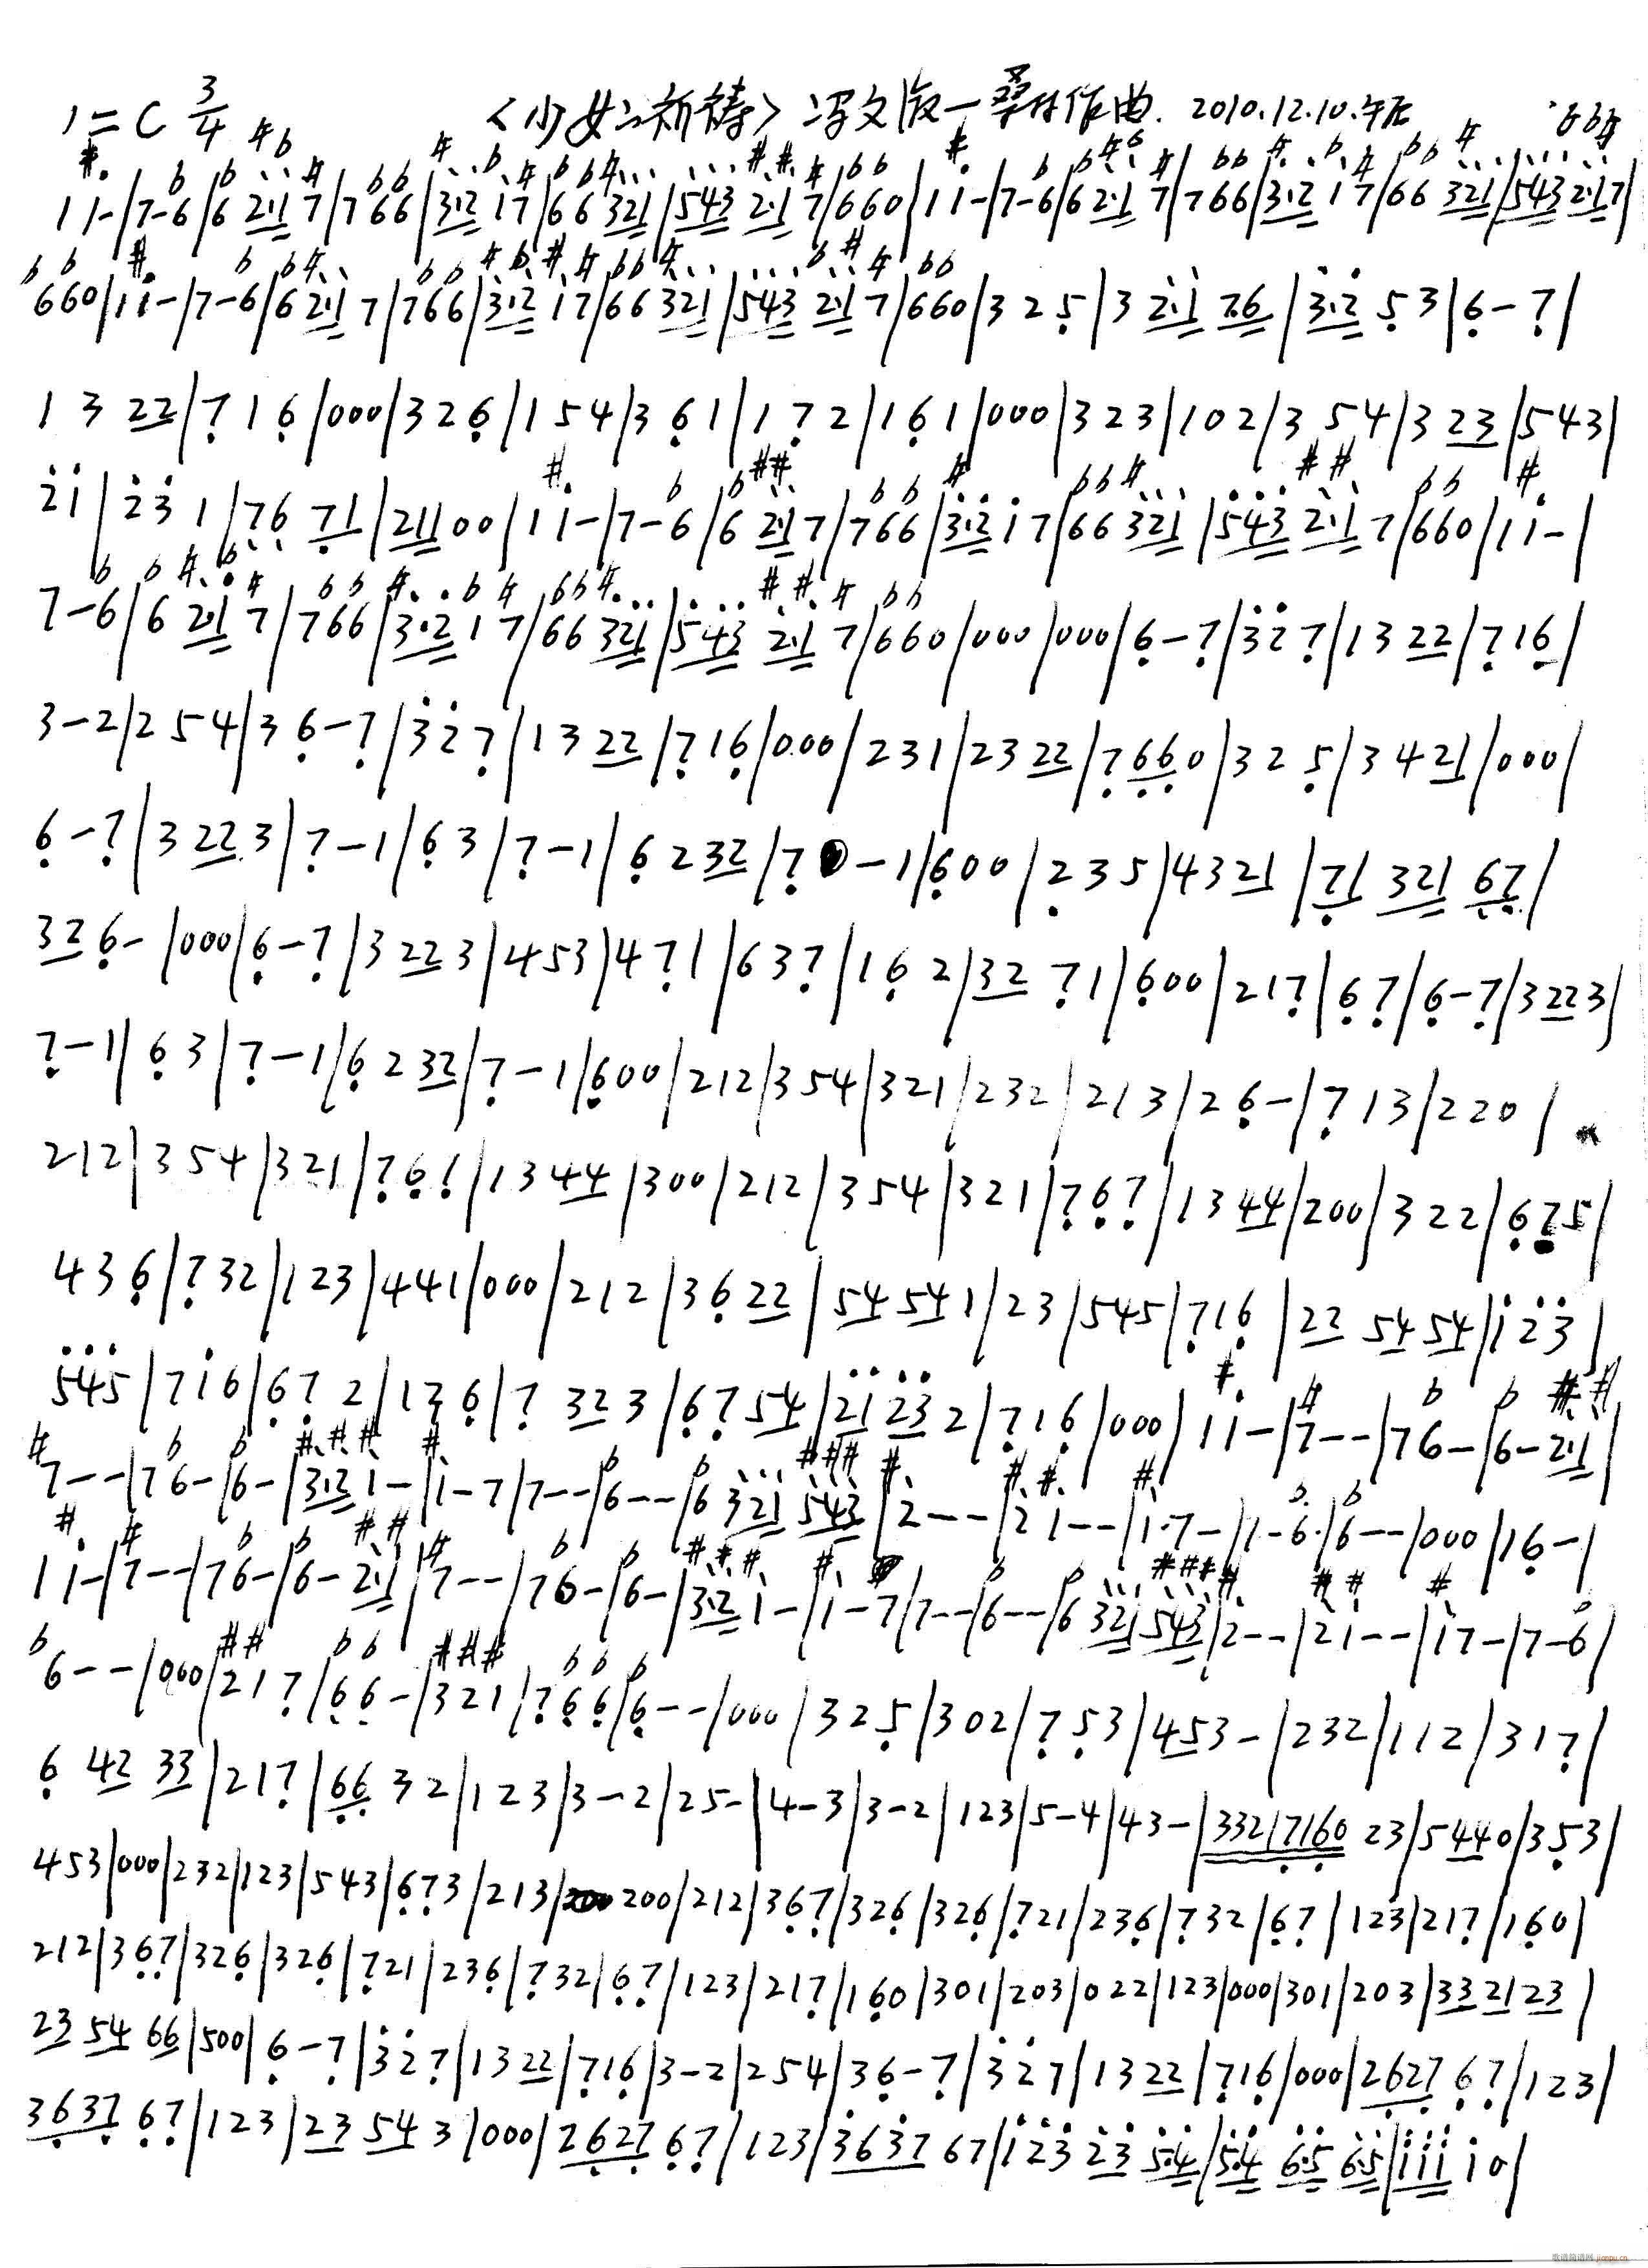 1=C 3/4 《少女的祈祷》冯文版一桑林作曲. 2010.12.10.午后
1 1-|7-6|6 2·1 7|7 6 6|3·2 1 7|6 6 321|543 2·1 7|6 6 0|1 1-|7-6|6 2·1 7|7 6 6|3·2 1 7|6 6 321|543 2·1 7|
6 6 0|1 1-|7-6|6 2·1 7|7 6 6|3·2 1 7|6 6 321|543 2·1 7|6 6 0|3 2 5|3 2·1 76|3·2 5 3|6-7|
1 3 22|7 1 6|000|3 2 6|1 5 4|3 6 1|1 7 2|1 6 1|000|3 2 3|1 0 2|3 5 4|3 23|5 4 3|
2 1|2 3 1|76 71|211 00|1 1-|7-6|6 2·1 7|7 6 6|3·2 1 7|6 6 321|543 2·1 7|6 6 0|1 1-|
7-6|6 2·1 7|7 6 6|3·2 1 7|6 6 321|543 2·1 7|6 6 0|000|000|6-7|3 2 7|1 3 22|7 1 6|
3-2|2 5 4|3 6-7|3 2 7|1 3 22|7 1 6|000|2 3 1|2 3 22|7 66 0|3 2 5|3 4 21|000|
6-7|3 22 3|7-1|6 3|7-1|6 2 32|7-1|6 0 0|2 3 5|4 3 21|71 321 67|
32 6-|000|6-7|3 22 3|4 5 3|4 7 1|6 3 7|1 6 2|32 7 1|6 0 0|2 1 7|6 7|6-7|3 22 3|
7-1|6 3|7-1|6 2 32|7-1|6 0 0|2 1 2|3 5 4|3 2 1|2 3 2|2 1 3|2 6-|7 1 3|2 2 0|
2 1 2|3 5 4|3 2 1|7 6 1|1 3 44|3 0 0|2 1 2|3 5 4|3 2 1|7 6 7|1 3 44|2 0 0|3 2 2|6 7 5|
4 3 6|7 3 2|1 2 3|4 4 1|000|2 1 2|3 6 22|54 54 1|2 3|5 4 5|7 1 6|22 54 54|1 2 3|
5 4 5|7 1 6|6 7 2|1 3 6|7 32 3|6 7 54|21 23 2|7 1 6|000|1 1-|7--|7 6-|6-2·1|
7--|7 6-|6-|3·2 1-|1-7|7--|6--|6 321 543|2--|2 1--|1·7-|7-6·|6--|000|1 6-|
1 1-|7--|7 6-|6-2·1|7--|7 6-|6-|3·2 1-|1-7|7--|6--|6 321 543|2--|2 1--|1 7-|7-6|
6--|000|2 1 7|6 6-|3 2 1|7 6 6|6--|000|3 2 5|3 0 2|7 5 3|4 5 3-|2 3 2|1 1 2|3 1 7|
6 42 33|2 1 7|66 3 2|1 2 3|3-2|2 5-|4-3|3-2|1 2 3|5-4|4 3-|332 17160 2 3|5 44 0|3 5 3|
4 5 3|000|2 3 2|1 2 3|5 4 3|6 7 3|2 1 3|2 0 0|2 1 2|3 6 7|3 2 6|3 2 6|7 2 1|2 3 6|7 3 2|6 7|1 2 3|2 1 7|1 6 0|
2 1 2|3 6 7|3 2 6|3 2 6|7 2 1|2 3 6|7 3 2|6 7|1 2 3|2 1 7|1 6 0|3 0 1|2 0 3|0 2 2|1 2 3|000|3 0 1|2 0 3|33 21 23|
23 54 66|5 0 0|6-7|3 2 7|1 3 22|7 1 6|3-2|2 5 4|3 6-7|3 2 7|1 3 22|7 1 6|000|2627 6 7|1 2 3|
3637 6 7|1 2 3|23 54 3|000|2627 6 7|1 2 3|3637 6 7|1 2 3 23 5·4|5·4 6·5 6·5|111 1 0|
歌谱简谱网 jianpu.cn